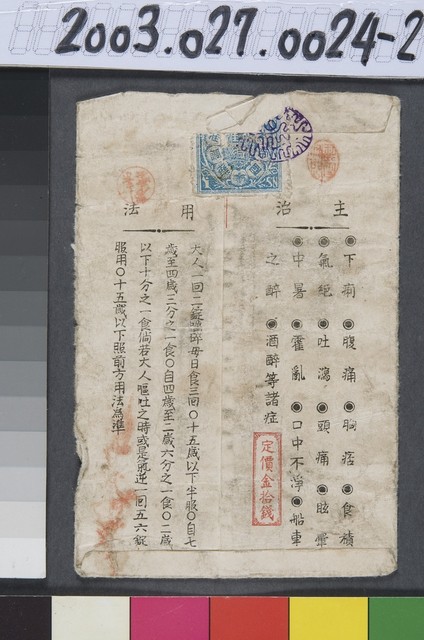 2003.027.0024-2
主治
◉下痢◉腹痛◉胸痞◉食積
◉氣絕◉吐瀉◉頭痛◉眩暈
◉中暑◉霍亂◉口中不淨◉船車
之醉◉酒醉等諸症
定價金拾錢
用法
大人一回二 每日食三回〇十五歲以下半服〇自七
歲至四歲三分之一食〇自四歲至二歲六分之一食〇二歲
以下十分之一食倘若大人嘔吐之時或是 逆一回五六錠
服用〇十五歲以下照前方用法為準